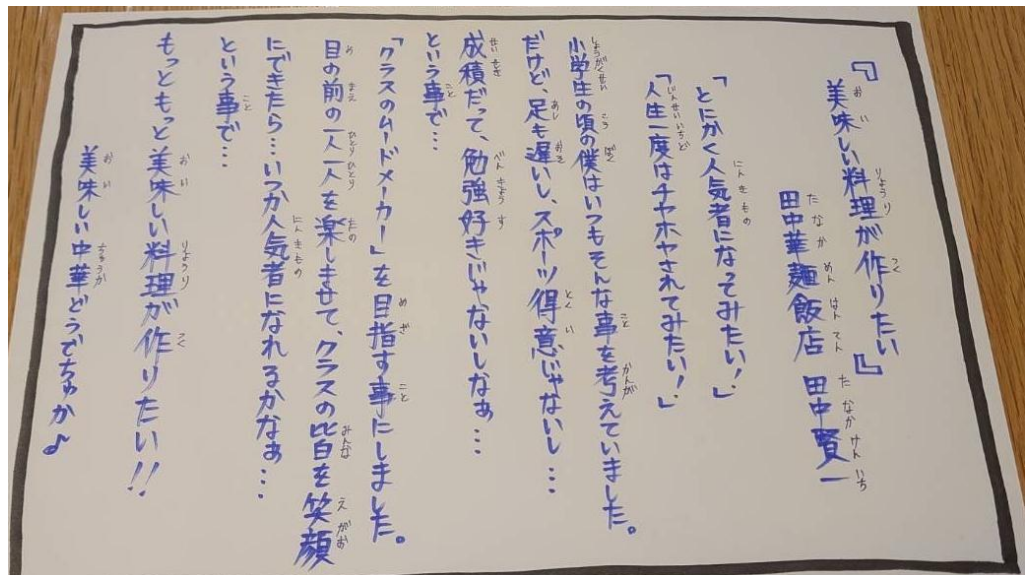 『美味しい料理が作りたい』
田中華麺飯店 田中賢一
「とにかく人気者になってみたい！」
「人生一度はチヤホヤされてみたい！」
小学生の頃の僕はいつもそんな事を考えていました。
だけど、足も遅いし、スポーツ得意じゃないし…
成績だって、勉強好きじゃないしなぁ…
という事で…
「クラスのムードメーカー」を目指す事にしました。
目の前の一人一人を楽しませて、クラスの皆を笑顔
にできたら…いつか人気者になれるかなぁ…
という事で…
もっともっと美味しい料理が作りたい!!
美味しい中華どうでちゅか♪